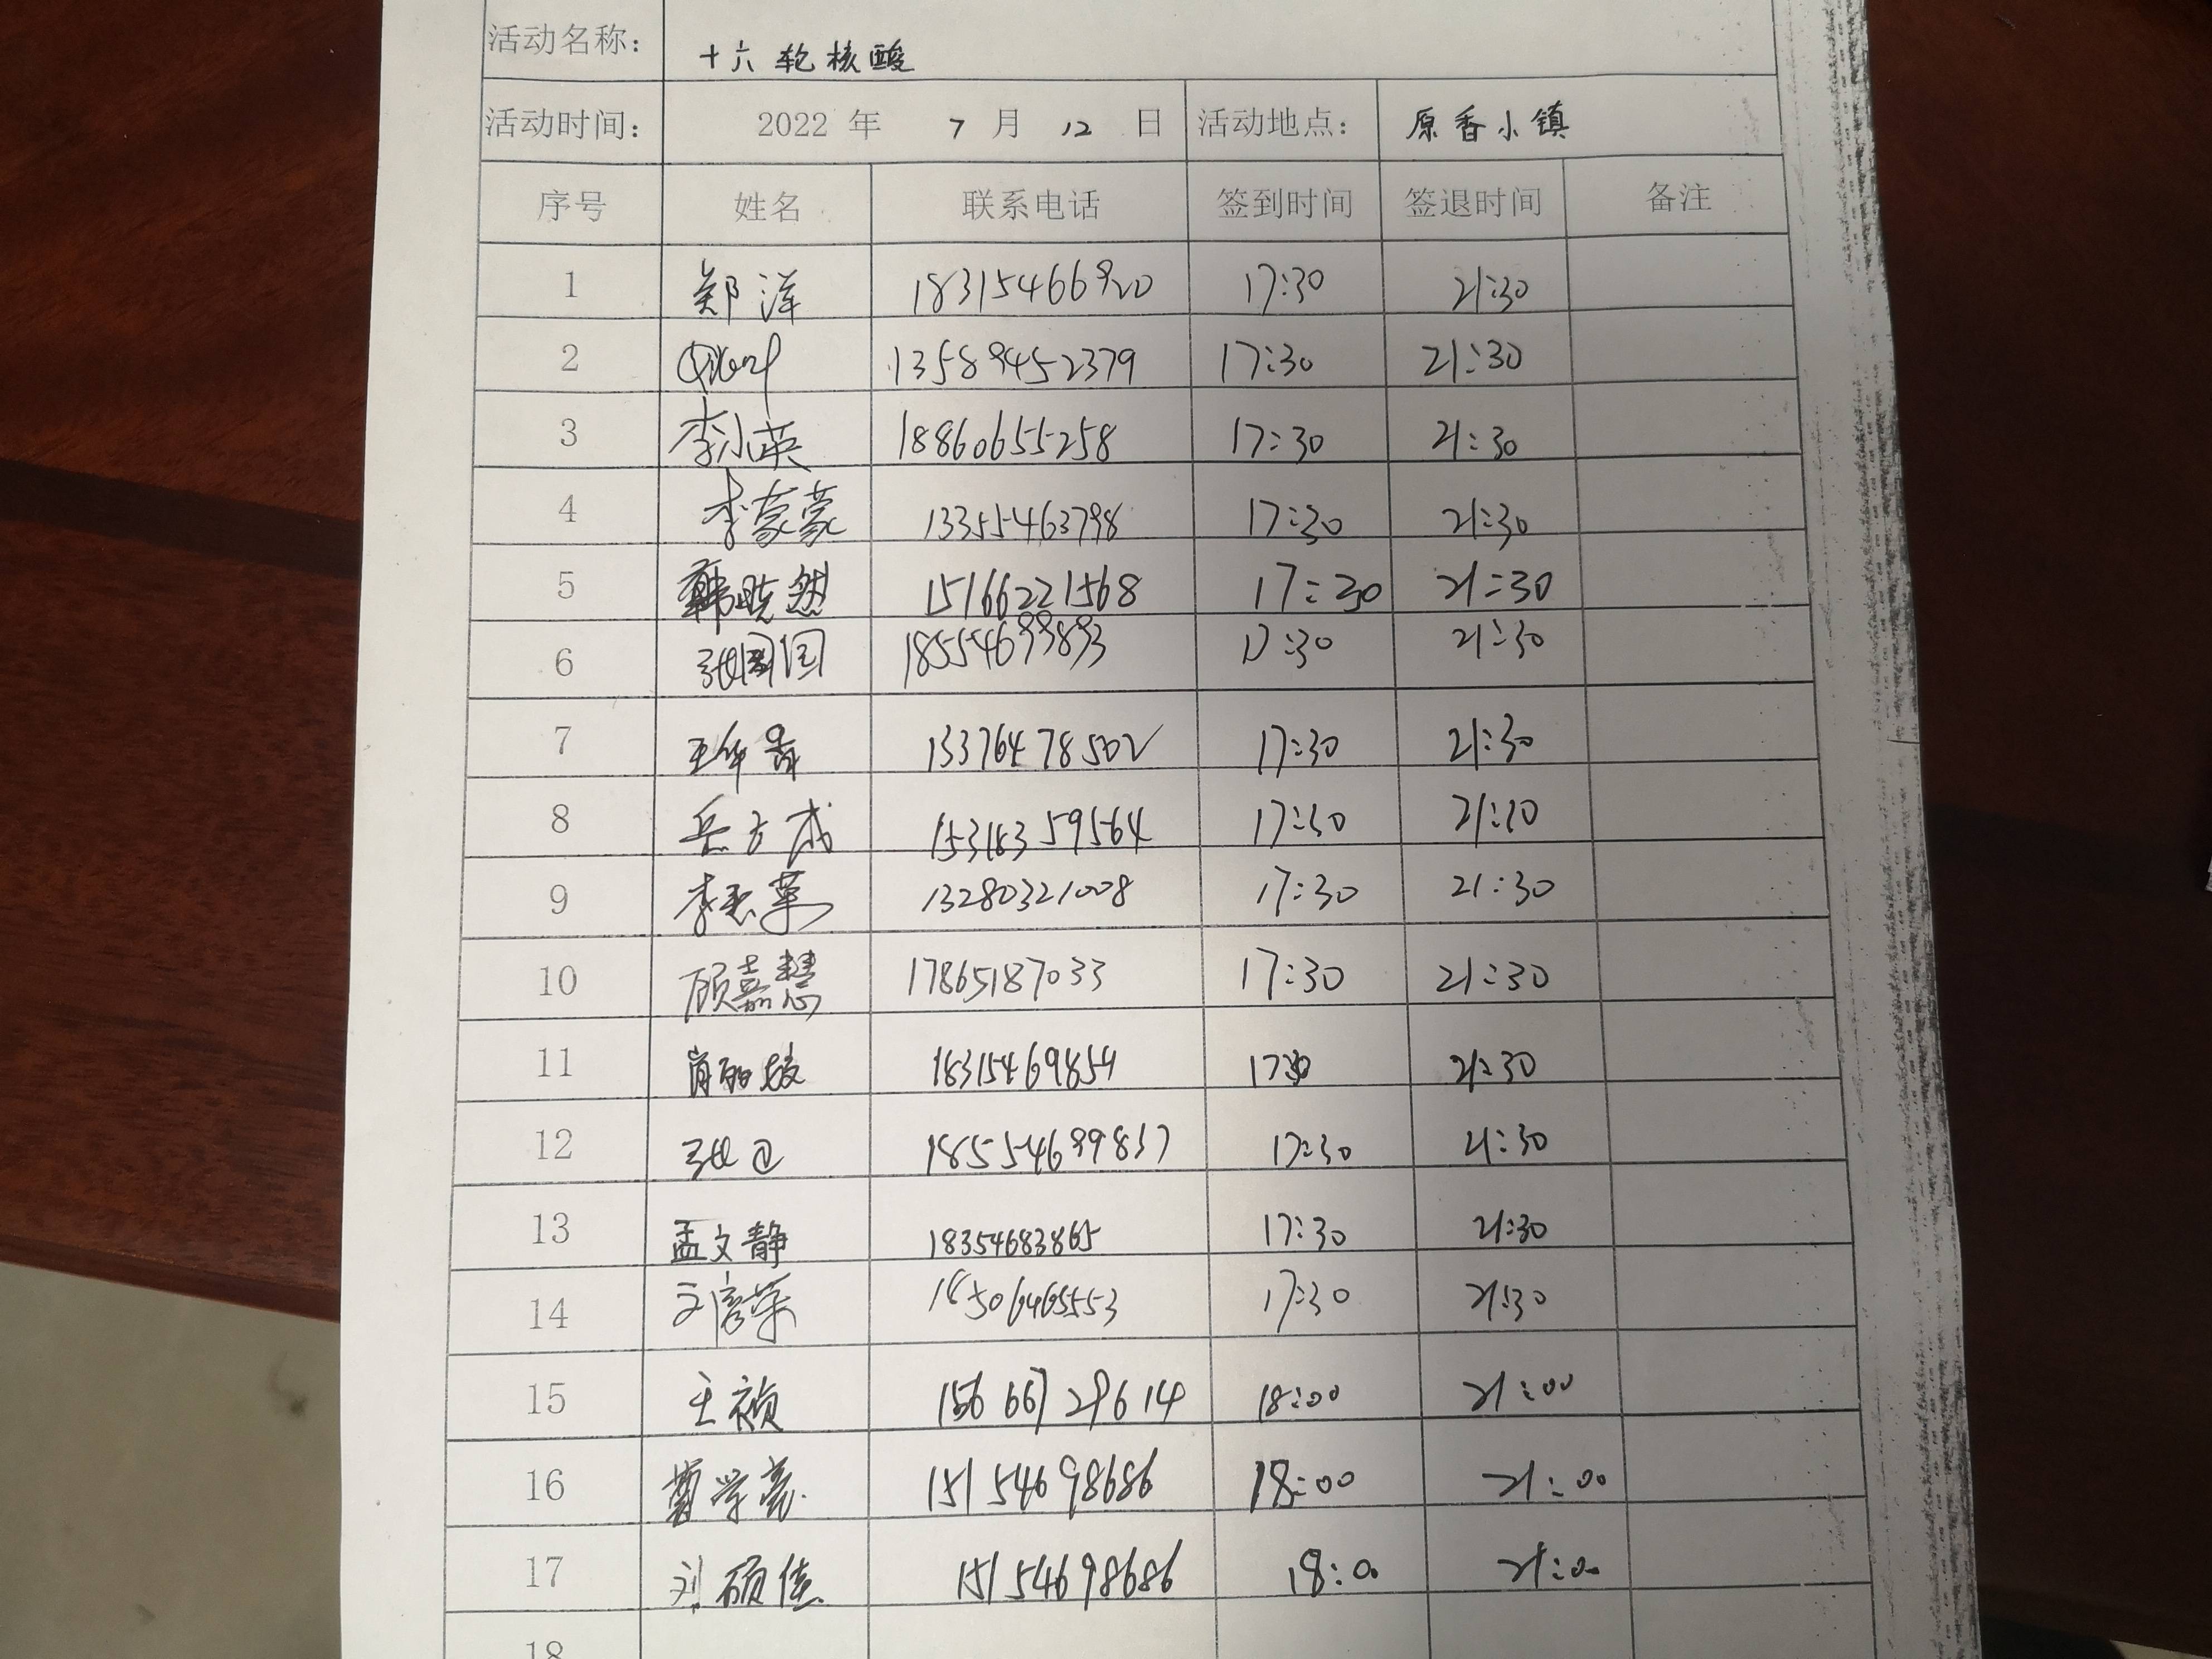 活动名称: 十六轮核酸
活动时间: 2022 年 7 月 12 日 活动地点: 原香小镇
序号 姓名 联系电话 签到时间 签退时间 备注
1 郑洋 18315466920 17:30 21:30
2 13589452379 17:30 21:30
3 李小英 18860655258 17:30 21:30
4 李蒙蒙 13355463798 17:30 21:30
5 韩晓然 15166221568 17:30 21:30
6 张国 18554699893 17:30 21:30
7 13376478502 17:30 21:30
8 岳方成 15318359564 17:30 21:30
9 13280321008 17:30 21:30
10 顾嘉慧 17865187033 17:30 21:30
11 肖丽 18315469859 17:30 21:30
12 张 18554699837 17:30 21:30
13 孟文静 18354683865 17:30 21:30
14 18506465553 17:30 21:30
15 王祯 15666729614 18:00 21:00
16 15154698686 18:00 21:00
17 刘硕佳 15154698686 18:00 21:00
18